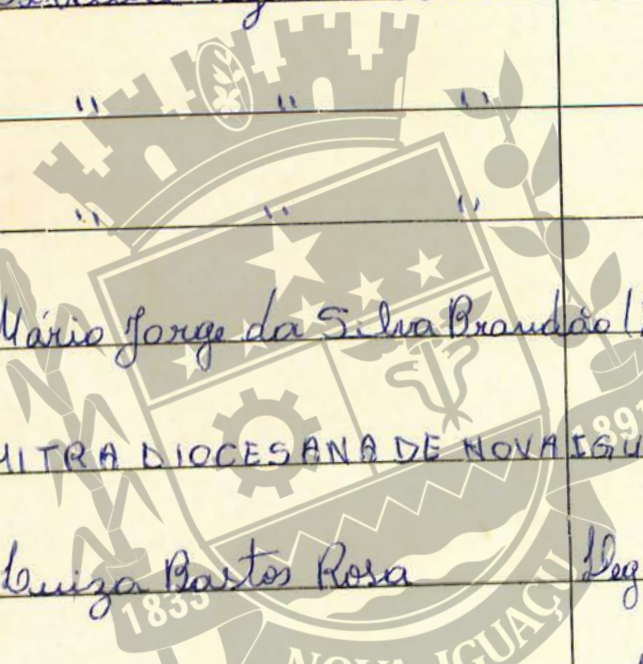 " " "
" " "
Mário Jorge da Silva Brandão
MITRA DIOCESANA DE NOVA IGU
Luiza Bastos Rosa
1833
189
NOVA IGUAÇU